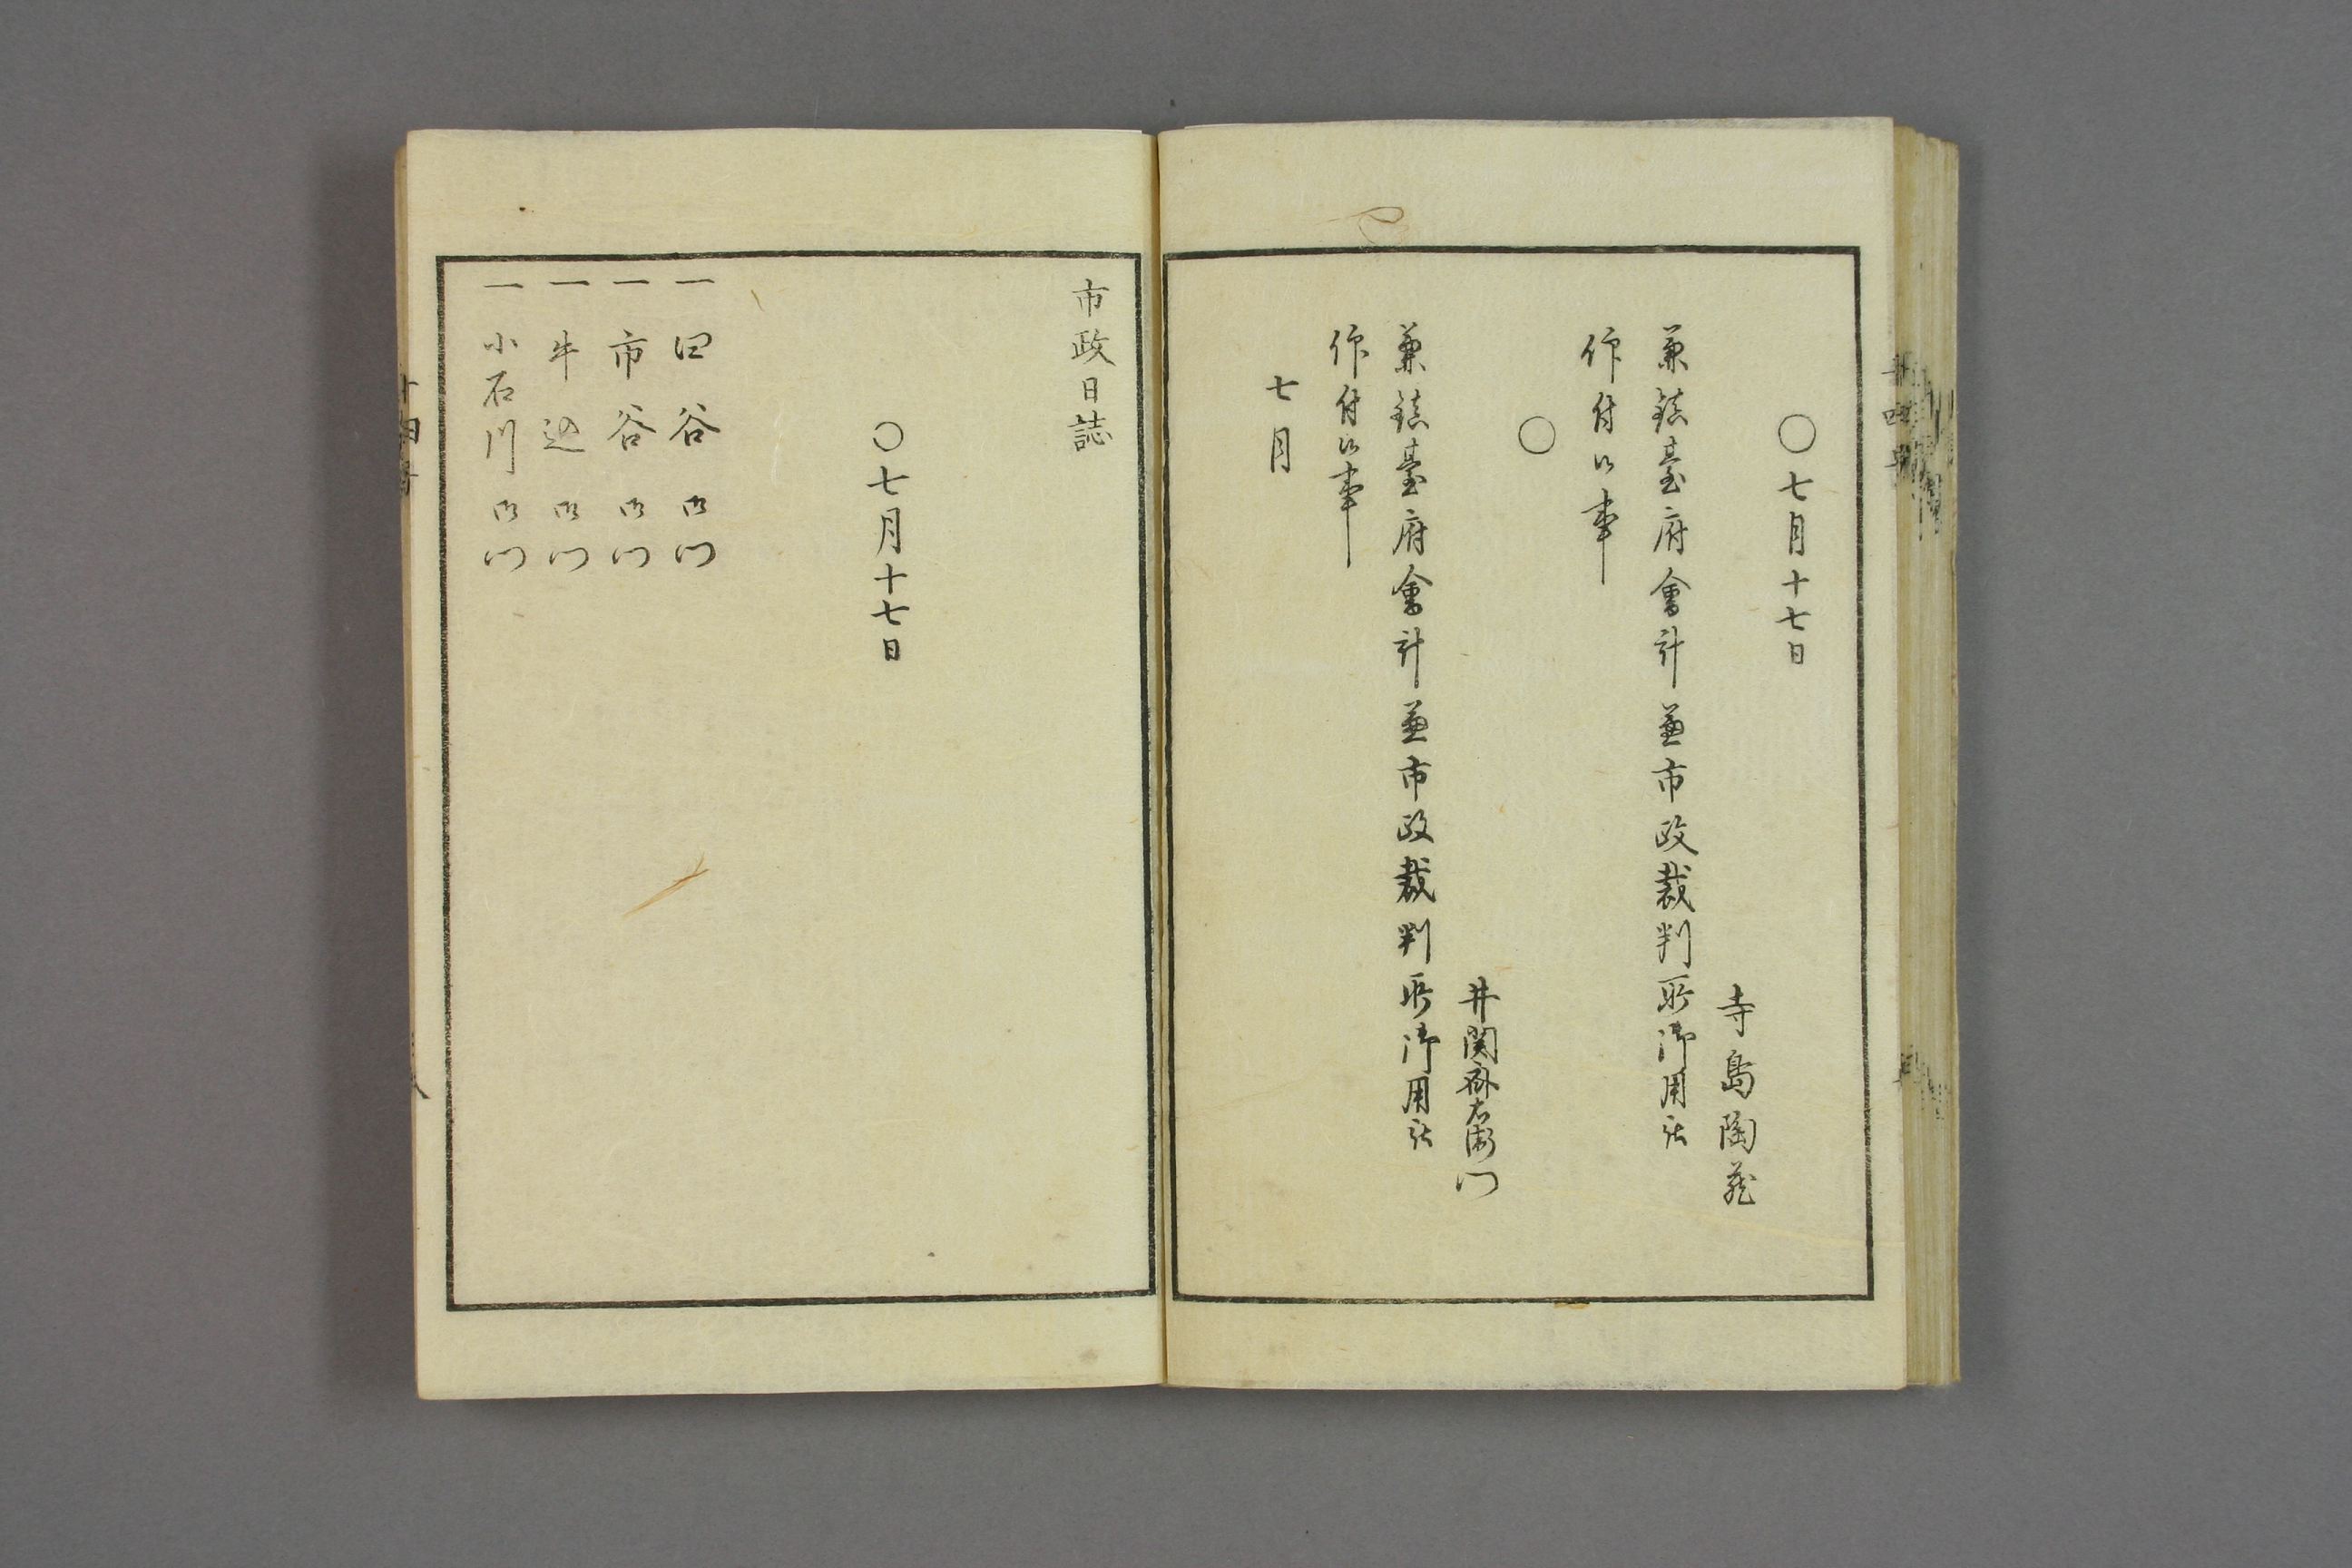 ○七月十七日
寺島陶蔵
兼鎮臺府會計兼市政裁判所御用被
仰付候事
○
井関斎右衛門
兼鎮臺府會計兼市政裁判所御用被
仰付候事
七月
市政日誌
○七月十七日
一 四谷御門
一 市谷御門
一 牛込御門
一 小石川御門